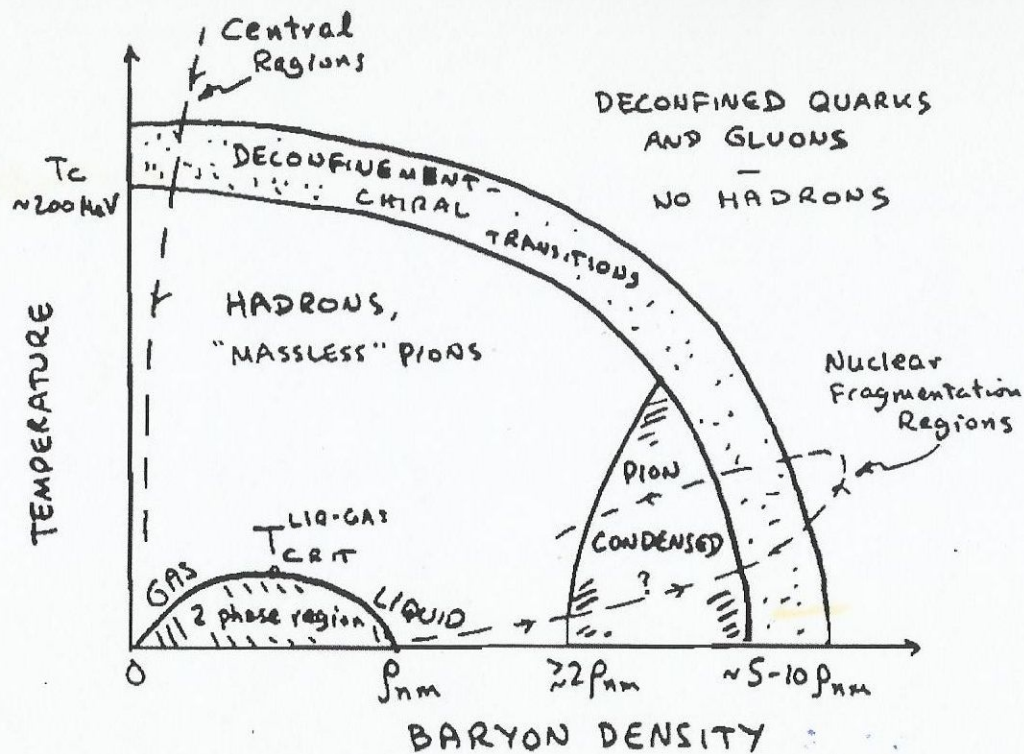 Central
Regions
DECONFINED QUARKS
AND GLUONS
—
NO HADRONS
Tc
~200 MeV
DECONFINEMENT-
CHIRAL
TRANSITIONS
HADRONS,
"MASSLESS" PIONS
Nuclear
Fragmentation
Regions
TEMPERATURE
PION
CONDENSED
?
T LIQ-GAS
CRIT
GAS
2 phase region
LIQUID
0
ρnm
≳2ρnm
~5-10ρnm
BARYON DENSITY